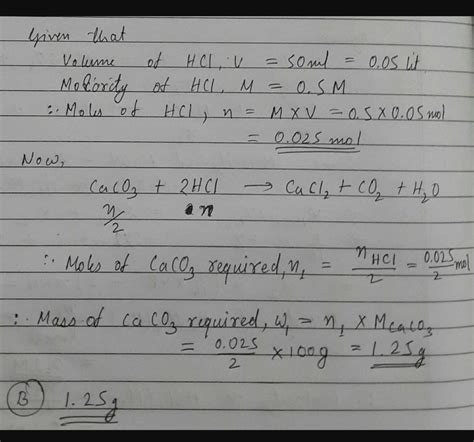 Given that
Volume of HCl, V = 50ml = 0.05 lit
Molarity of HCl, M = 0.5M
∴ Moles of HCl, n = M×V = 0.5×0.05mol
= 0.025mol
Now,
CaCO₃ + 2HCl → CaCl₂ + CO₂ + H₂O
n/2 n
∴ Moles of CaCO₃ required, n₁ = nHCl/2 = 0.025/2 mol
∴ Mass of CaCO₃ required, w₁ = n₁ × MCaCO₃
= 0.025/2 × 100g = 1.25g
(B) 1.25g